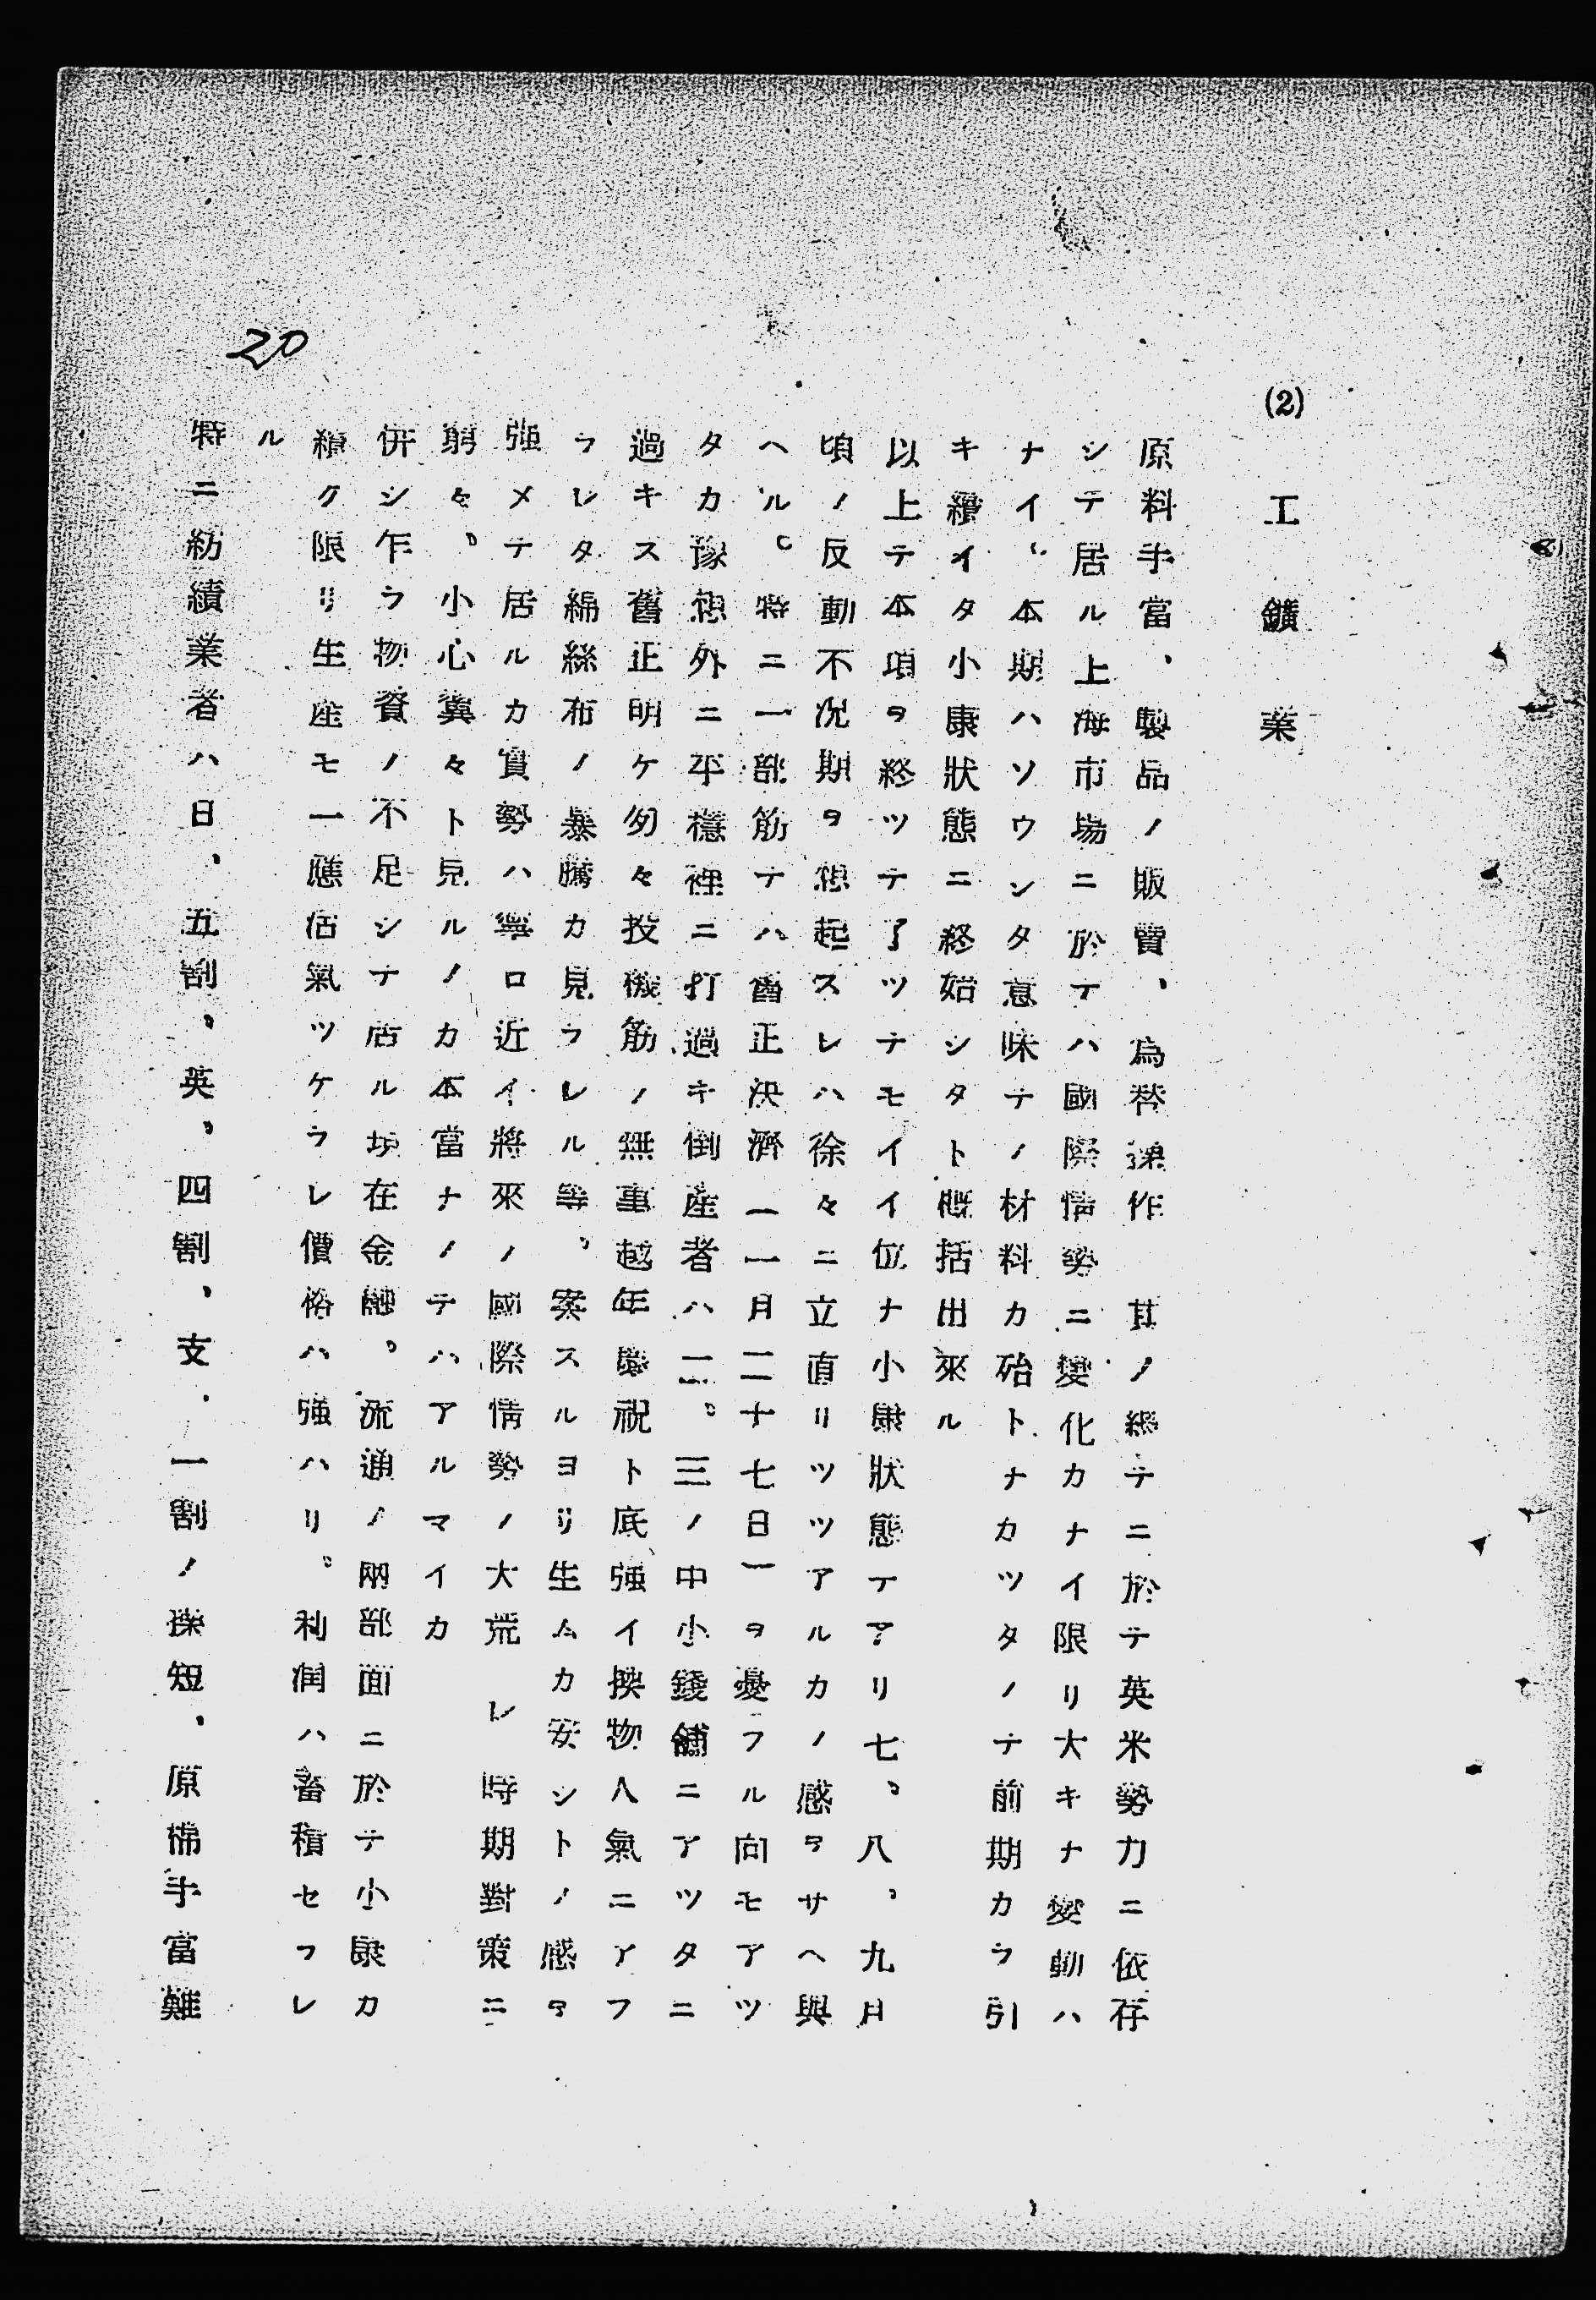 (2) 工鑛業
原料手當、製品ノ販賣、爲替操作 其ノ總テニ於テ英米勢力ニ依存
シテ居ル上海市場ニ於テハ國際情勢ニ變化カナイ限リ大キナ變動ハ
ナイ、本期ハソウシタ意味テノ材料カ殆トナカツタノテ前期カラ引
キ續イタ小康狀態ニ終始シタト概括出來ル
以上テ本項ヲ終ツテ了ツテモイイ位ナ小康狀態テアリ七、八、九月
頃ノ反動不況期ヲ想起スレハ徐々ニ立直リツツアルカノ感ヲサヘ與
ヘル。特ニ一部筋テハ舊正決濟(一月二十七日)ヲ憂フル向モアツ
タカ豫想外ニ平穩裡ニ打過キ倒産者ハ二。三ノ中小錢舖ニアツタニ
過キス舊正明ケ匆々投機筋ノ無事越年慶祝ト底強イ換物人氣ニアフ
ラレタ綿絲布ノ暴騰カ見ラレル等、案スルヨリ生ムカ安シトノ感ヲ
强メテ居ルカ實勢ハ寧ロ近イ將來ノ國際情勢ノ大荒レ時期對策ニ
窮々、小心翼々ト見ルノカ本當ナノテハアルマイカ
併シ乍ラ物資ノ不足シテ居ル現在金融、流通ノ兩部面ニ於テ小康カ
續ク限リ生産モ一應活氣ツケラレ價格ハ強ハリ。利潤ハ蓄積セラレ
ル
特ニ紡績業者ハ日、五割、英、四割、支、一割ノ操短、原棉手當難
20